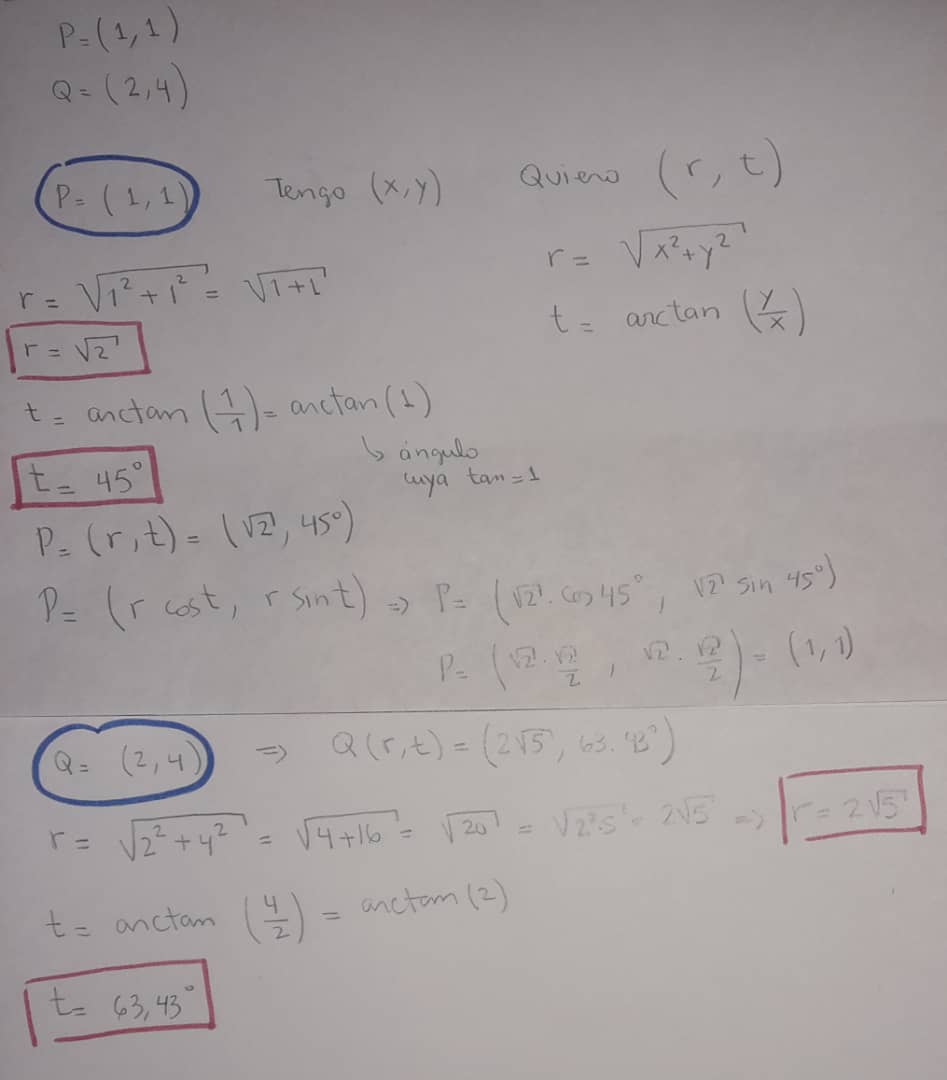 P=(1,1)
Q=(2,4)
P=(1,1) Tengo (x,y) Quiero (r,t)
r= √x²+y²
r= √1²+1² = √1+1
t= arctan (y/x)
r=√2
t= arctan (1/1)= arctan(1)
↳ ángulo
cuya tan=1
t= 45°
P=(r,t)=(√2, 45°)
P= (r cost, r sint) => P= (√2·cos45°, √2 sin 45°)
P= (√2·√2/2, √2·√2/2)= (1,1)
Q= (2,4) => Q(r,t)=(2√5, 63.43°)
r= √2²+4² = √4+16 = √20 = √2²5 = 2√5 => r=2√5
t= arctan (4/2) = arctan(2)
t= 63,43°